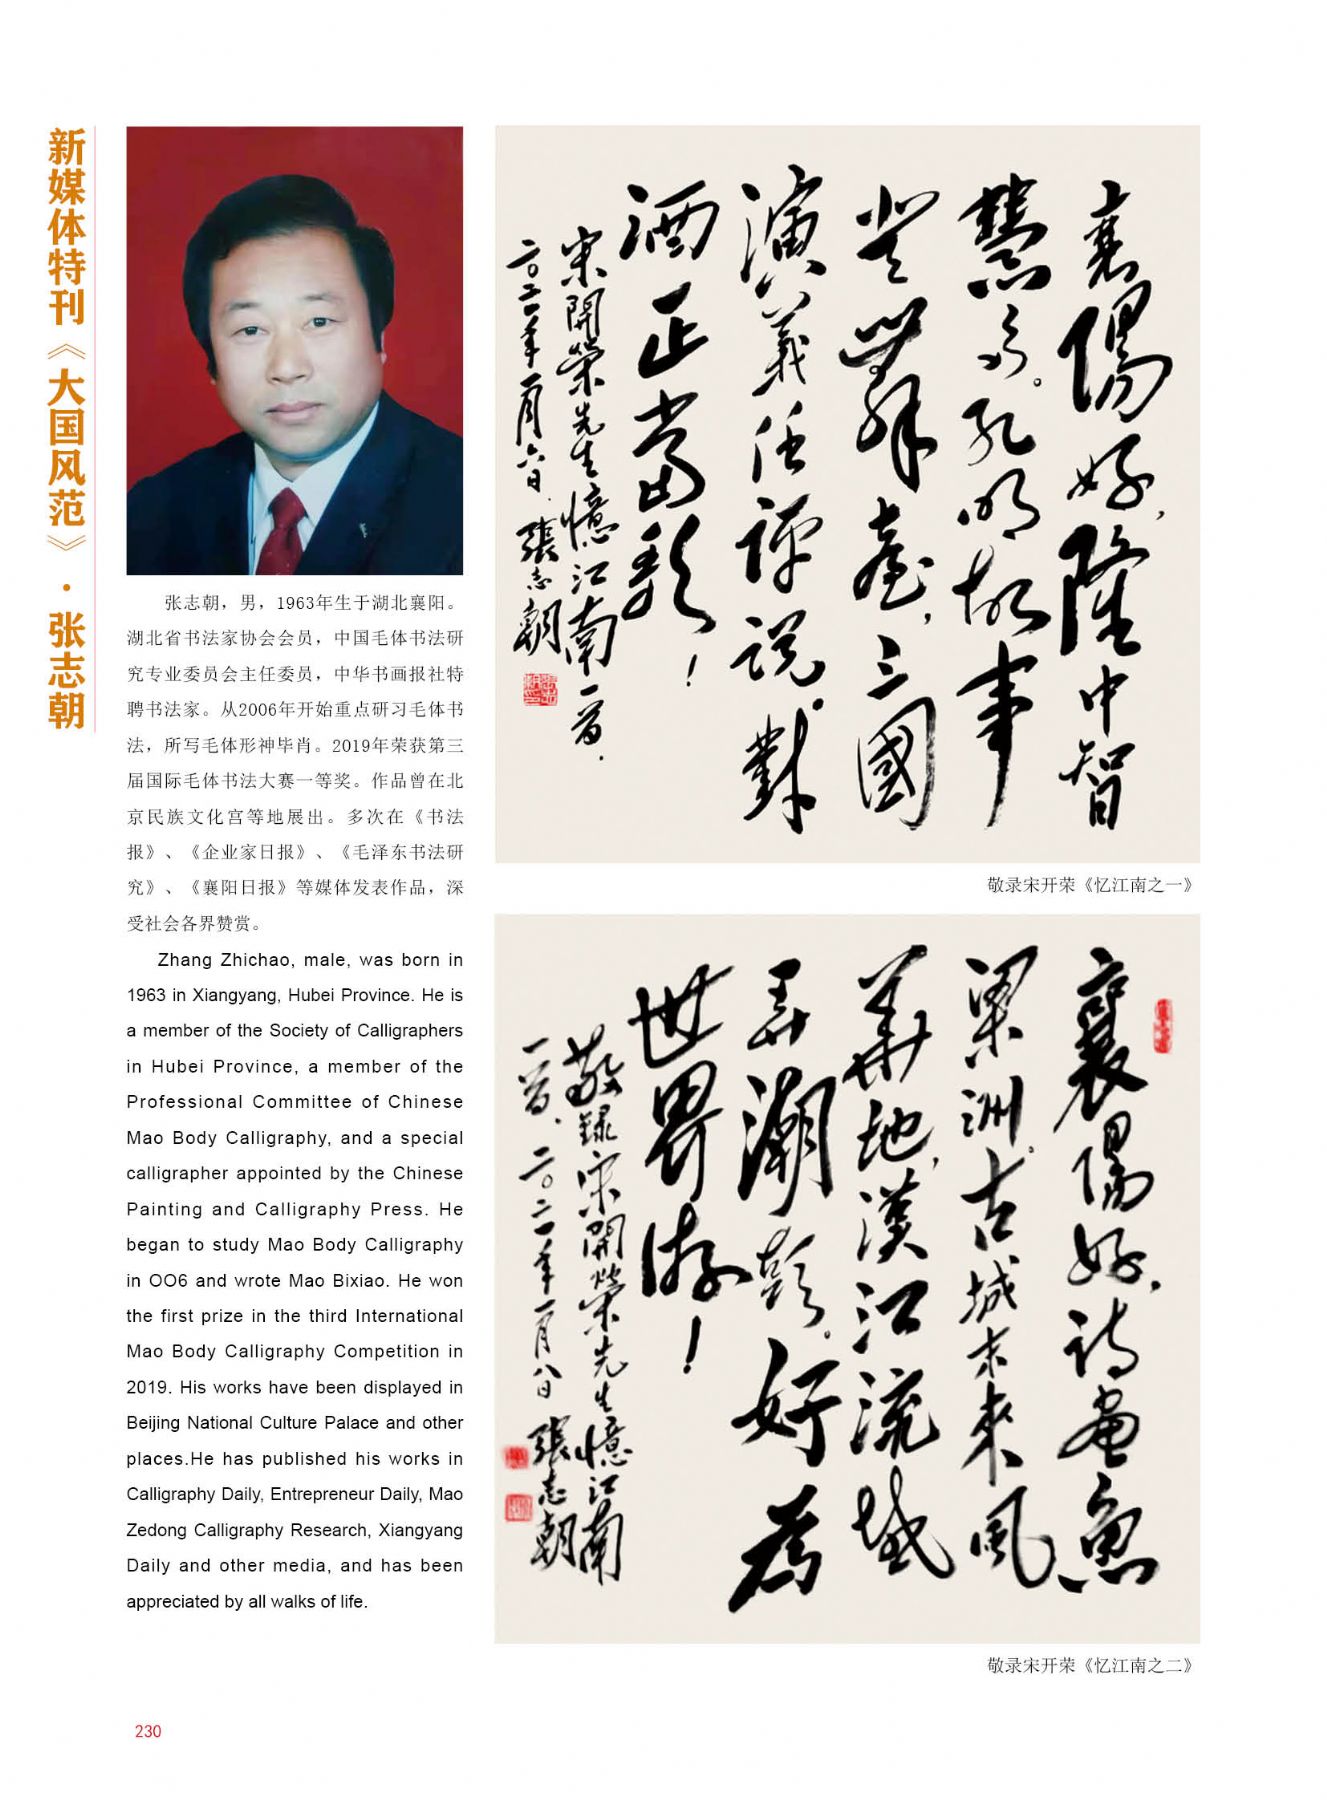 新媒体特刊《大国风范》·张志朝
张志朝，男，1963年生于湖北襄阳。
湖北省书法家协会会员，中国毛体书法研
究专业委员会主任委员，中华书画报社特
聘书法家。从2006年开始重点研习毛体书
法，所写毛体形神毕肖。2019年荣获第三
届国际毛体书法大赛一等奖。作品曾在北
京民族文化宫等地展出。多次在《书法
报》、《企业家日报》、《毛泽东书法研
究》、《襄阳日报》等媒体发表作品，深
受社会各界赞赏。
Zhang Zhichao, male, was born in
1963 in Xiangyang, Hubei Province. He is
a member of the Society of Calligraphers
in Hubei Province, a member of the
Professional Committee of Chinese
Mao Body Calligraphy, and a special
calligrapher appointed by the Chinese
Painting and Calligraphy Press. He
began to study Mao Body Calligraphy
in OO6 and wrote Mao Bixiao. He won
the first prize in the third International
Mao Body Calligraphy Competition in
2019. His works have been displayed in
Beijing National Culture Palace and other
places.He has published his works in
Calligraphy Daily, Entrepreneur Daily, Mao
Zedong Calligraphy Research, Xiangyang
Daily and other media, and has been
appreciated by all walks of life.
襄陽好，隆中智
慧多。孔明故事
登舞臺，三國
演義任評說。對
酒正當歌！
宋開榮先生憶江南一首.
二〇二一年一月六日.張志朝
敬录宋开荣《忆江南之一》
襄陽好，詩畫魚
梁洲。古城未來風
華地，漢江流域
弄潮彭。好為
世界游！
敬録宋開榮先生憶江南
一首、二〇二一年一月八日 張志朝
敬录宋开荣《忆江南之二》
230